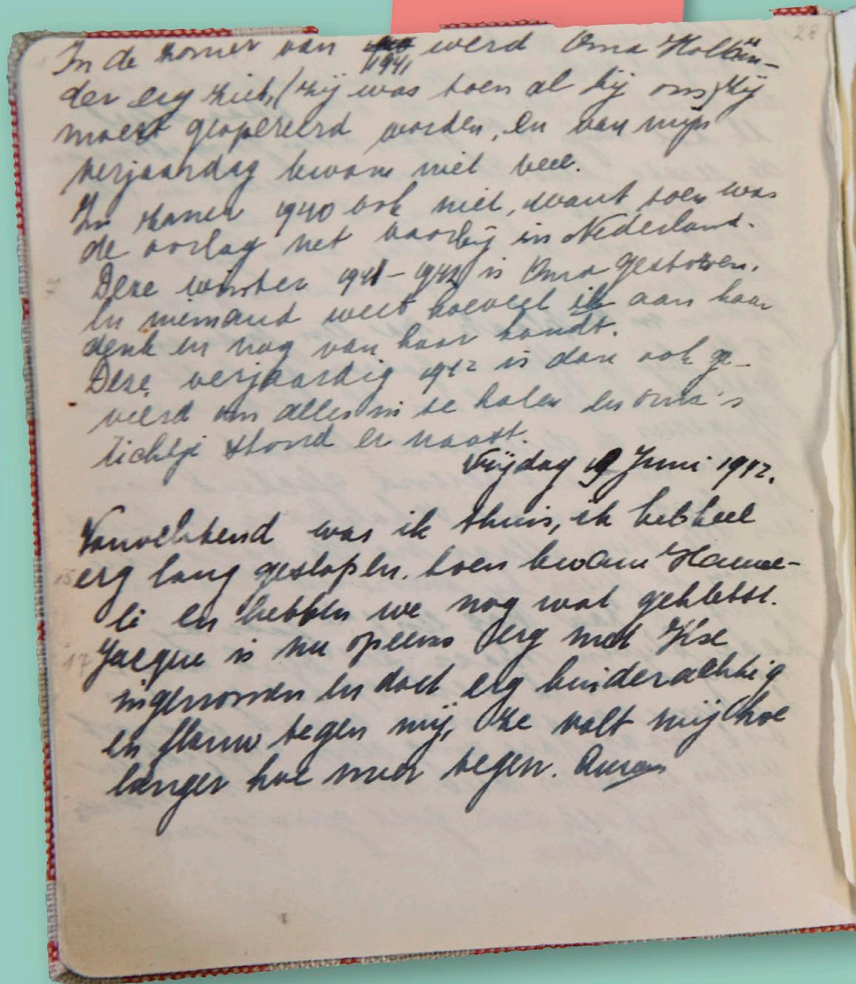 28
In de zomer van 1941 werd Oma Hollän-
der erg ziek, (zij was toen al bij ons) zij
moest geopereerd worden, en van mijn
verjaardag kwam niet veel.
In zomer 1940 ook niet, want toen was
de oorlog net voorbij in Nederland.
Deze winter 1941-1942 is Oma gestorven.
En niemand weet hoeveel ik aan haar
denk en nog van haar houdt.
Deze verjaardig 1942 is dan ook ge-
vierd om alles in te halen en oma's
lichtje stond er naast.
Vrijdag 19 Juni 1942.
Vanochtend was ik thuis, ik heb heel
erg lang geslapen, toen kwam Hanne-
li en hebben we nog wat gekletst.
Jacque is nu opeens erg met Ilse
ingenomen en doet erg kinderachtig
en flauw tegen mij, ze valt mij hoe
langer hoe meer tegen.